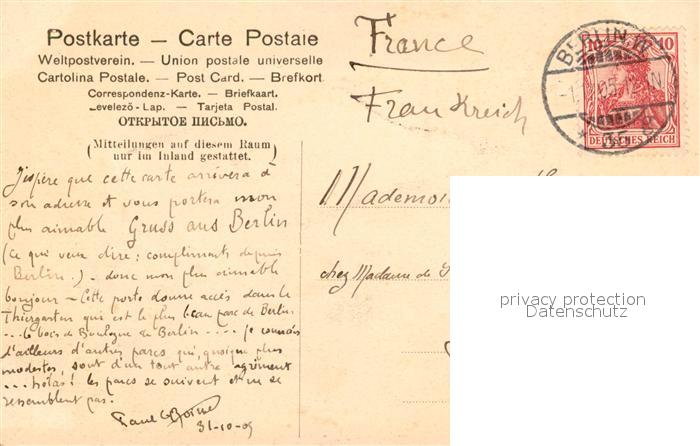 Postkarte — Carte Postale
Weltpostverein. — Union postale universelle
Cartolina Postale. — Post Card. — Brefkort
Correspondenz-Karte. — Briefkaart.
Levelező-Lap. — Tarjeta Postal.
ОТКРЫТОЕ ПИСЬМО.
(Mitteilungen auf diesem Raum
nur im Inland gestattet.)
France
Frankreich
BERLIN W
35
10 10
DEUTSCHES REICH
J'espère que cette carte arrivera à
son adresse et vous portera mon
plus aimable Gruss aus Berlin
(ce qui veux dire: compliments depuis
Berlin.) - donc mon plus aimable
bonjour - Cette porte donne accès dans le
Thiergarten qui est le plus beau parc de Berlin
... le bois de Boulogne de Berlin .... je connais
d'ailleurs d'autres parcs qui, quoique plus
modestes, sont d'un tout autre agrément
... hélas! les parcs se suivent et ne se
ressemblent pas.
Paul
31-10-05
Mademoi
chez Madame de
privacy protection
Datenschutz